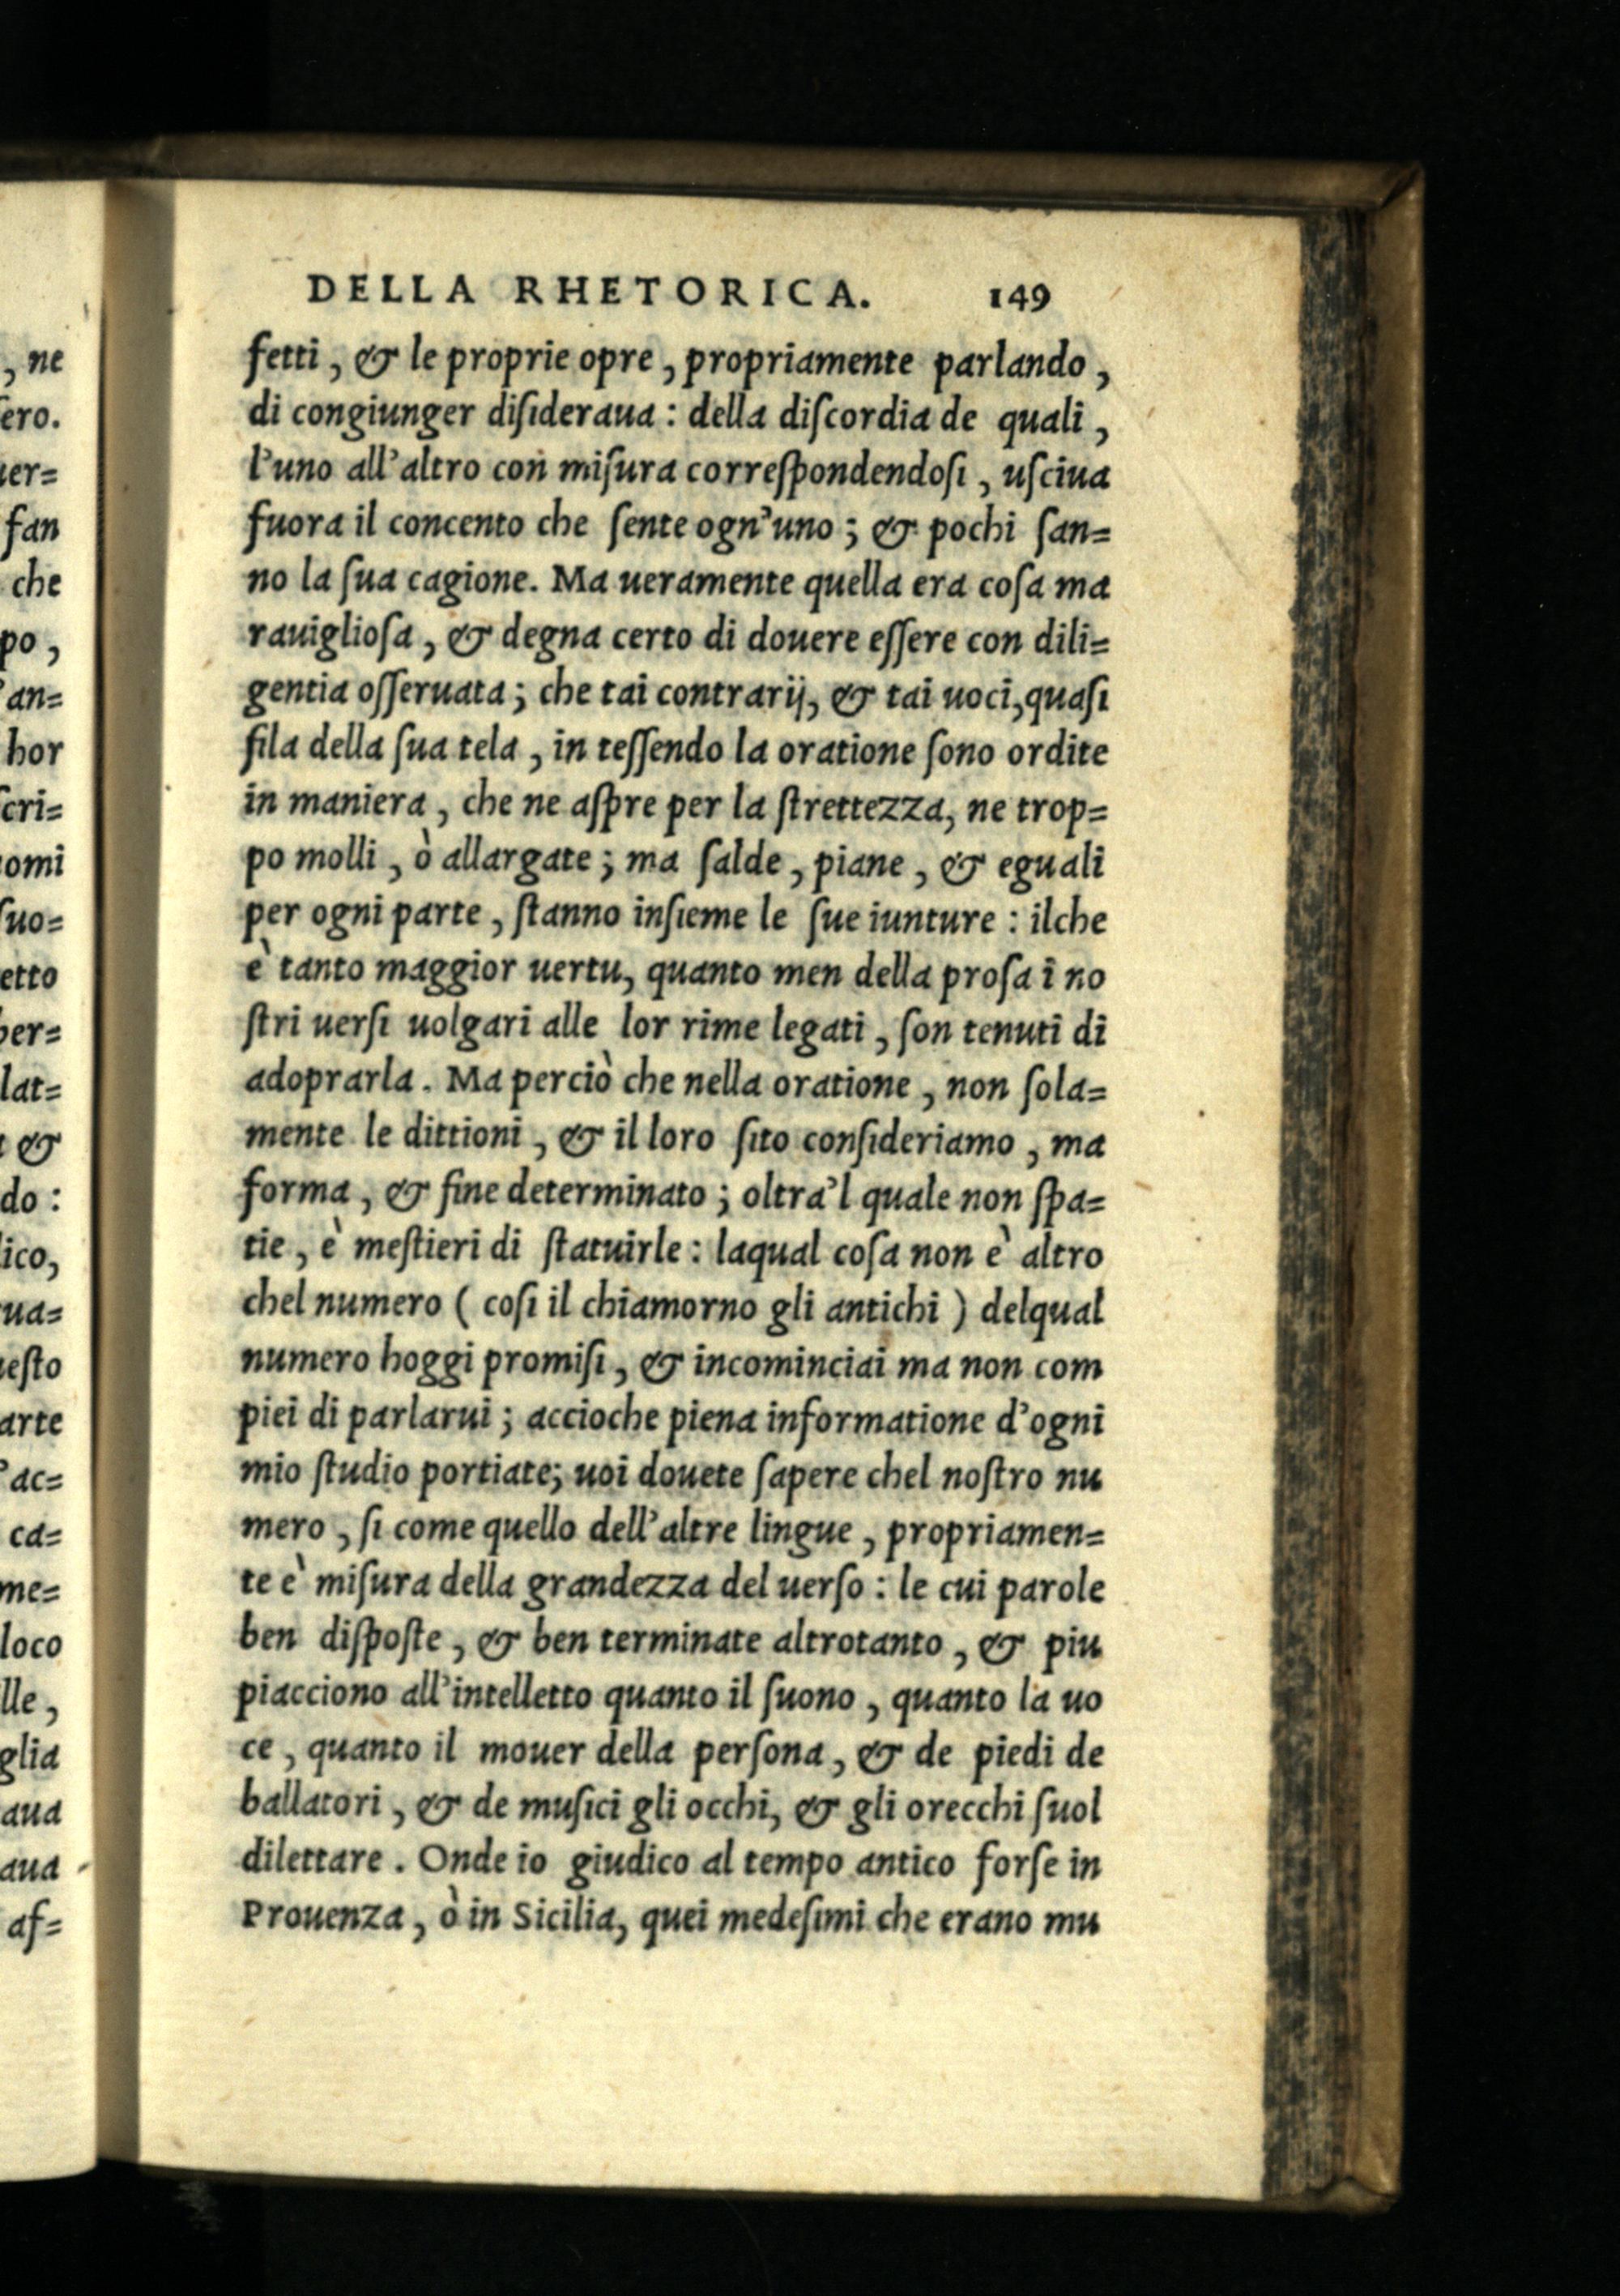 DELLA RHETORICA. 149
fetti, & le proprie opre, propriamente parlando,
di congiunger diſideraua: della diſcordia de quali,
l'uno all'altro con miſura correſpondendoſi, uſciua
fuora il concento che ſente ogn'uno; & pochi ſan=
no la ſua cagione. Ma ueramente quella era coſa ma
rauiglioſa, & degna certo di douere eſſere con dili=
gentia oſſeruata; che tai contrarij, & tai uoci, quaſi
fila della ſua tela, in teſſendo la oratione ſono ordite
in maniera, che ne aſpre per la ſtrettezza, ne trop=
po molli, ò allargate; ma ſalde, piane, & eguali
per ogni parte, ſtanno inſieme le ſue iunture: ilche
è tanto maggior uertu, quanto men della proſa i no
ſtri uerſi uolgari alle lor rime legati, ſon tenuti di
adoprarla. Ma perciò che nella oratione, non ſola=
mente le dittioni, & il loro ſito conſideriamo, ma
forma, & fine determinato; oltra'l quale non ſpa=
tie, è meſtieri di ſtatuirle: laqual coſa non è altro
chel numero (coſi il chiamorno gli antichi) delqual
numero hoggi promiſi, & incominciai ma non com
piei di parlarui; accioche piena informatione d'ogni
mio ſtudio portiate; uoi douete ſapere chel noſtro nu
mero, ſi come quello dell'altre lingue, propriamen=
te è miſura della grandezza del uerſo: le cui parole
ben diſpoſte, & ben terminate altrotanto, & piu
piacciono all'intelletto quanto il ſuono, quanto la uo
ce, quanto il mouer della perſona, & de piedi de
ballatori, & de muſici gli occhi, & gli orecchi ſuol
dilettare. Onde io giudico al tempo antico forſe in
Prouenza, ò in Sicilia, quei medeſimi che erano mu